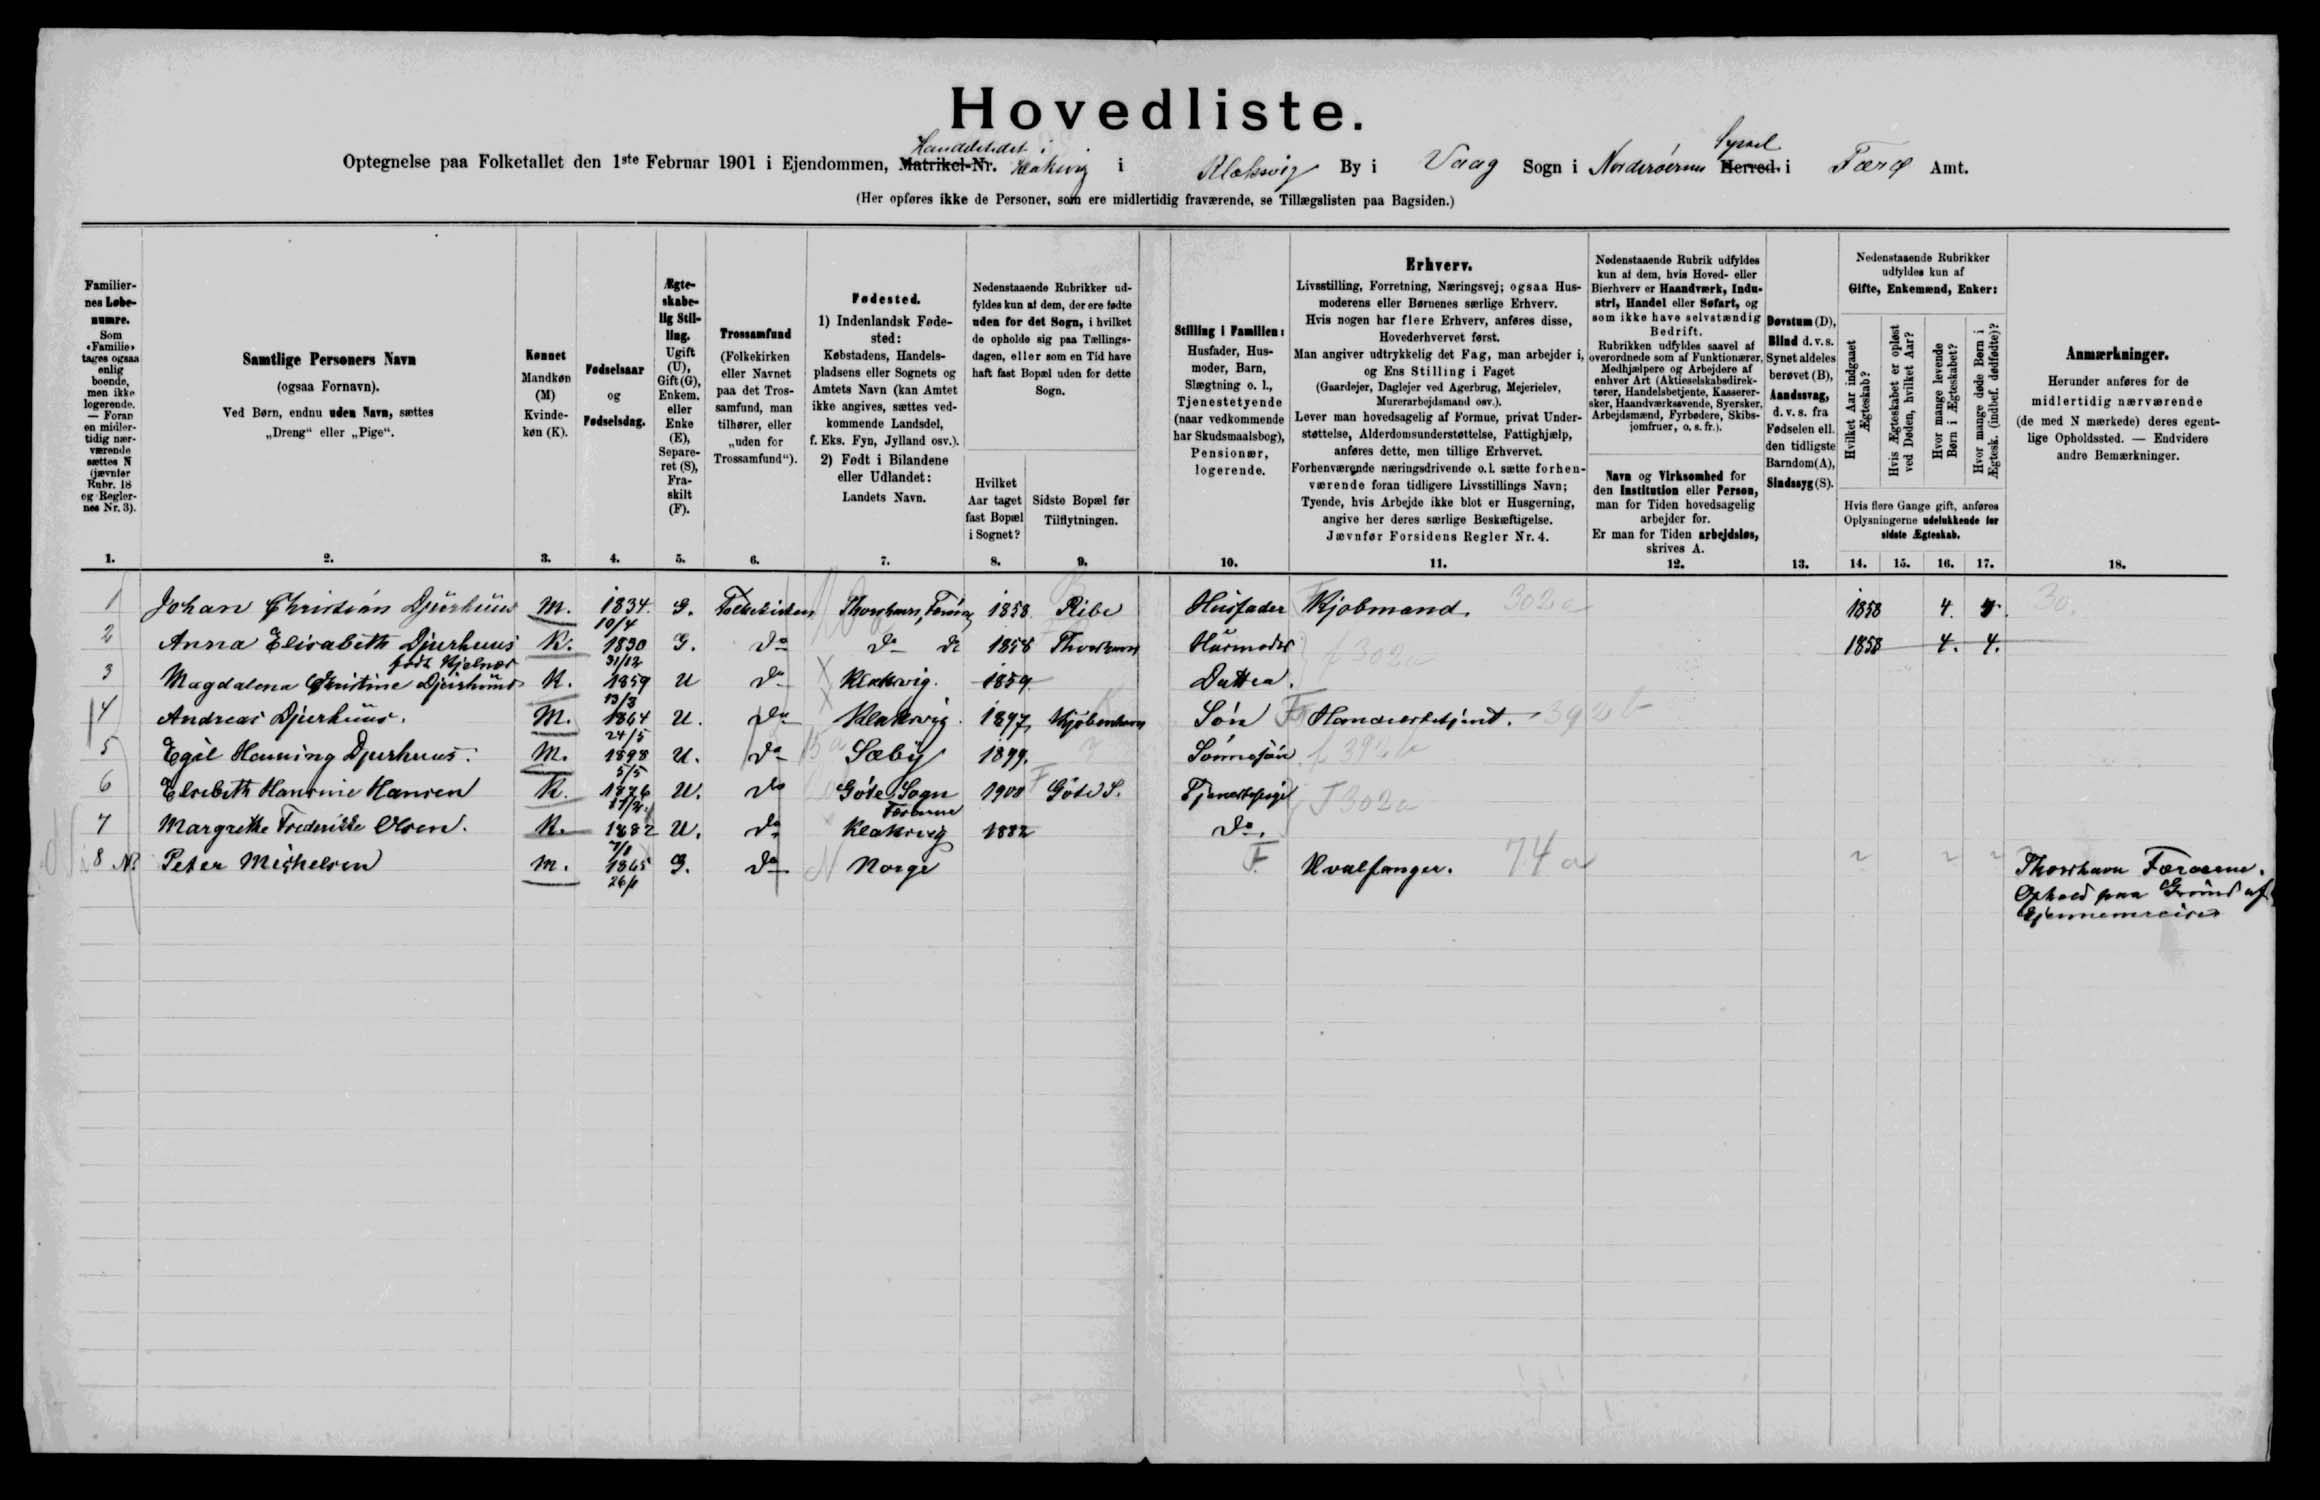 Hovedliste.
Optegnelse paa Folketallet den 1ste Februar 1901 i Ejendommen, Matrikel-Nr. Handelstedet i Klaksvig i Klaksvig By i Vaag Sogn i Norderöernes Herred Syssel i Færø Amt.
(Her opføres ikke de Personer, som ere midlertidig fraværende, se Tillægslisten paa Bagsiden.)
Familier-
nes Løbe-
numre.
Som
«Familie»
tages ogsaa
enlig
boende,
men ikke
logerende.
— Foran
en midler-
tidig nær-
værende
sættes N
(jævnfør
Rubr. 18
og Regler-
nes Nr. 3).
1.
Samtlige Personers Navn
(ogsaa Fornavn).
Ved Børn, endnu uden Navn, sættes
„Dreng“ eller „Pige“.
2.
Kønnet
Mandkøn
(M)
Kvinde-
køn (K).
3.
Fødselsaar
og
Fødselsdag.
4.
Ægte-
skabe-
lig Stil-
ling.
Ugift
(U),
Gift (G),
Enkem.
eller
Enke
(E),
Separe-
ret (S),
Fra-
skilt
(F).
5.
Trossamfund
(Folkekirken
eller Navnet
paa det Tros-
samfund, man
tilhører, eller
„uden for
Trossamfund“).
6.
Fødested.
1) Indenlandsk Føde-
sted:
Købstadens, Handels-
pladsens eller Sognets og
Amtets Navn (kan Amtet
ikke angives, sættes ved-
kommende Landsdel,
f. Eks. Fyn, Jylland osv.).
2) Født i Bilandene
eller Udlandet:
Landets Navn.
7.
Nedenstaaende Rubrikker ud-
fyldes kun af dem, der ere fødte
uden for det Sogn, i hvilket
de opholde sig paa Tællings-
dagen, eller som en Tid have
haft fast Bopæl uden for dette
Sogn.
Hvilket
Aar taget
fast Bopæl
i Sognet?
8.
Sidste Bopæl før
Tilflytningen.
9.
Stilling i Familien:
Husfader, Hus-
moder, Barn,
Slægtning o. l.,
Tjenestetyende
(naar vedkommende
har Skudsmaalsbog),
Pensionær,
logerende.
10.
Erhverv.
Livsstilling, Forretning, Næringsvej; ogsaa Hus-
moderens eller Børnenes særlige Erhverv.
Hvis nogen har flere Erhverv, anføres disse,
Hovederhvervet først.
Man angiver udtrykkelig det Fag, man arbejder i,
og Ens Stilling i Faget
(Gaardejer, Daglejer ved Agerbrug, Mejerielev,
Murerarbejdsmand osv.).
Lever man hovedsagelig af Formue, privat Under-
støttelse, Alderdomsunderstøttelse, Fattighjælp,
anføres dette, men tillige Erhvervet.
Forhenværende næringsdrivende o. l. sætte forhen-
værende foran tidligere Livsstillings Navn;
Tyende, hvis Arbejde ikke blot er Husgerning,
angive her deres særlige Beskæftigelse.
Jævnfør Forsidens Regler Nr. 4.
11.
Nedenstaaende Rubrik udfyldes
kun af dem, hvis Hoved- eller
Bierhverv er Haandværk, Indu-
stri, Handel eller Søfart, og
som ikke have selvstændig
Bedrift.
Rubrikken udfyldes saavel af
overordnede som af Funktionærer,
Medhjælpere og Arbejdere af
enhver Art (Aktieselskabsdirek-
tører, Handelsbetjente, Kasserer-
sker, Haandværkssvende, Syersker,
Arbejdsmænd, Fyrbødere, Skibs-
jomfruer, o. s. fr.).
Navn og Virksomhed for
den Institution eller Person,
man for Tiden hovedsagelig
arbejder for.
Er man for Tiden arbejdsløs,
skrives A.
12.
Døvstum (D),
Blind d. v. s.
Synet aldeles
berøvet (B),
Aandssvag,
d. v. s. fra
Fødselen ell.
den tidligste
Barndom (A),
Sindssyg (S).
13.
Nedenstaaende Rubrikker
udfyldes kun af
Gifte, Enkemænd, Enker:
Hvilket Aar indgaaet
Ægteskab?
Hvis Ægteskabet er opløst
ved Døden, hvilket Aar?
Hvor mange levende
Børn i Ægteskabet?
Hvor mange døde Børn i
Ægtesk. (indbef. dødfødte)?
Hvis flere Gange gift, anføres
Oplysningerne udelukkende for
sidste Ægteskab.
14. 15. 16. 17.
Anmærkninger.
Herunder anføres for de
midlertidig nærværende
(de med N mærkede) deres egent-
lige Opholdssted. — Endvidere
andre Bemærkninger.
18.
1 Johan Christian Djürhüus M. 1834 10/4 G. Folkekirken Thorshavn, 1858 Ribe Husfader Kjøbmand. 302a 1858 4. 30.
2 Anna Elisabeth Djurhuus K. 1830 31/12 G. do do do 1858 Thorshavn Husmoder f 302a 1858 4. 4.
født Kjelnæs
3 Magdalena Christine Djürhüus K. 1859 13/3 U do Klaksvig. 1859 Datter.
4 Andreas Djurhüus. M. 1864 24/5 U. do Klaksvig. 1897 Kjøbenhavn Sön F Handelsbetjent. 392b
5 Egil Henning Djurhuus. M. 1898 5/5 U. do Sæby 1899. Sönnesön f 392b
6 Elsebeth Hansine Hansen K. 1876 U. do Göte Sogn Færøerne 1900 Göte S. Tjenestepige F302a
7 Margrethe Frederikke Olsen. K. 1882 7/1 U. do Klaksvig 1882 do.
8 N. Peter Michelsen M. 1865 26/1 G. do Norge F. Hvalfanger. 74a Thorshavn Færøerne.
Ophold paa Grund af
Gjennemreise